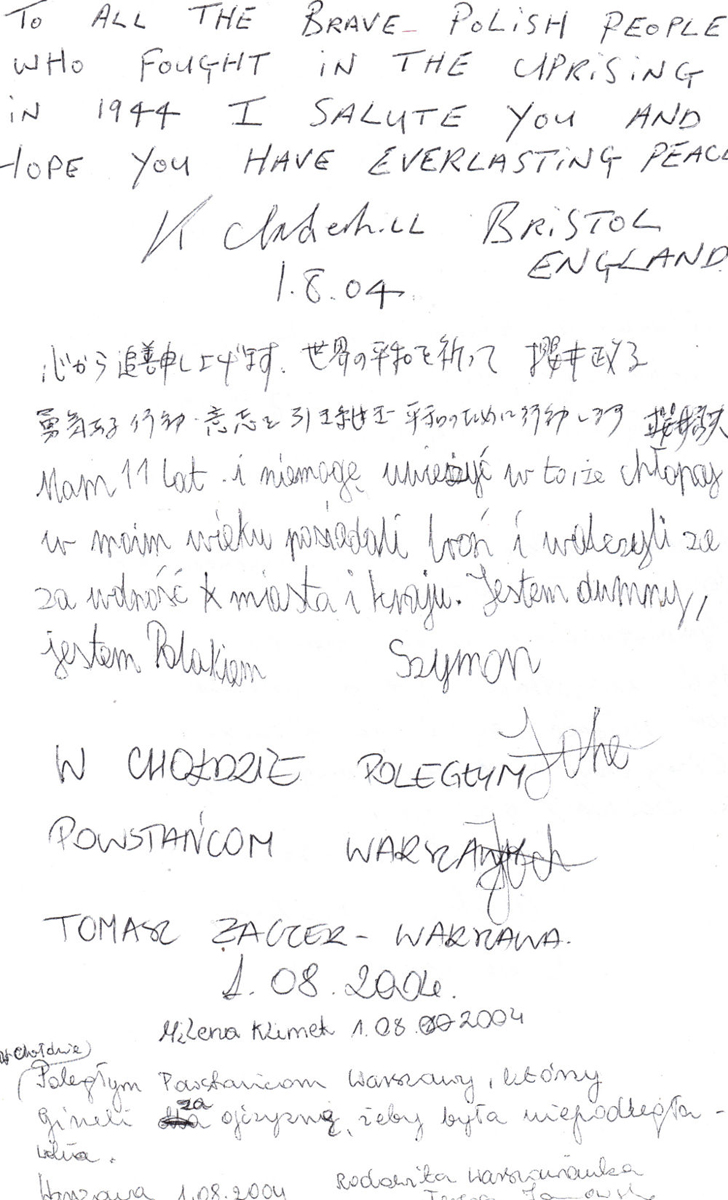 To ALL THE BRAVE POLISH PEOPLE
WHO FOUGHT IN THE UPRISING
IN 1944 I SALUTE YOU AND
HOPE YOU HAVE EVERLASTING PEACE
K BRISTOL
ENGLAND
1.8.04
心から追善申し上げます。世界の平和を祈って 櫻井政子
勇気ある行動・意志を引き継ぎ平和のために行動します 櫻井
Mam 11 lat i niemogę uwieżyć w to że chłopcy
w moim wieku posiadali broń i walczyli za
za wolność miasta i kraju. Jestem dumny,
jestem Polakiem Szymon
W CHOŁDZIE POLEGŁYM
POWSTAŃCOM
TOMASZ ŻACZER - WARSZAWA.
1.08.2004.
Milena Klimek 1.08.2004
W Chołdzie
Poległym Powstańcom Warszawy, którzy
gineli za ojczyznę, żeby była niepodległa -
Warszawa 1.08.2004 Rodowita Warszawianka
Teresa